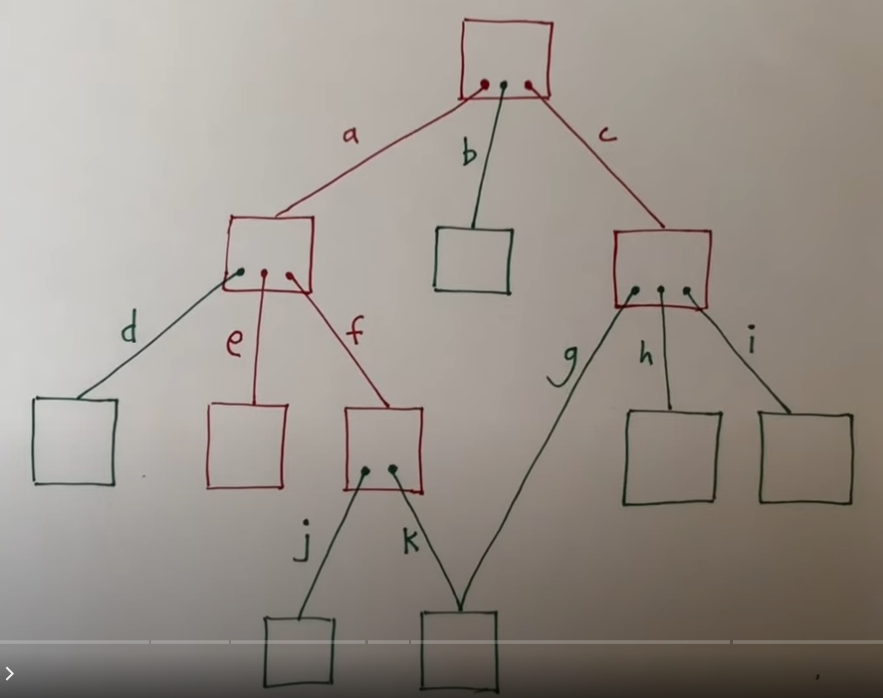 a
b
c
d
e
f
g
h
i
j
k